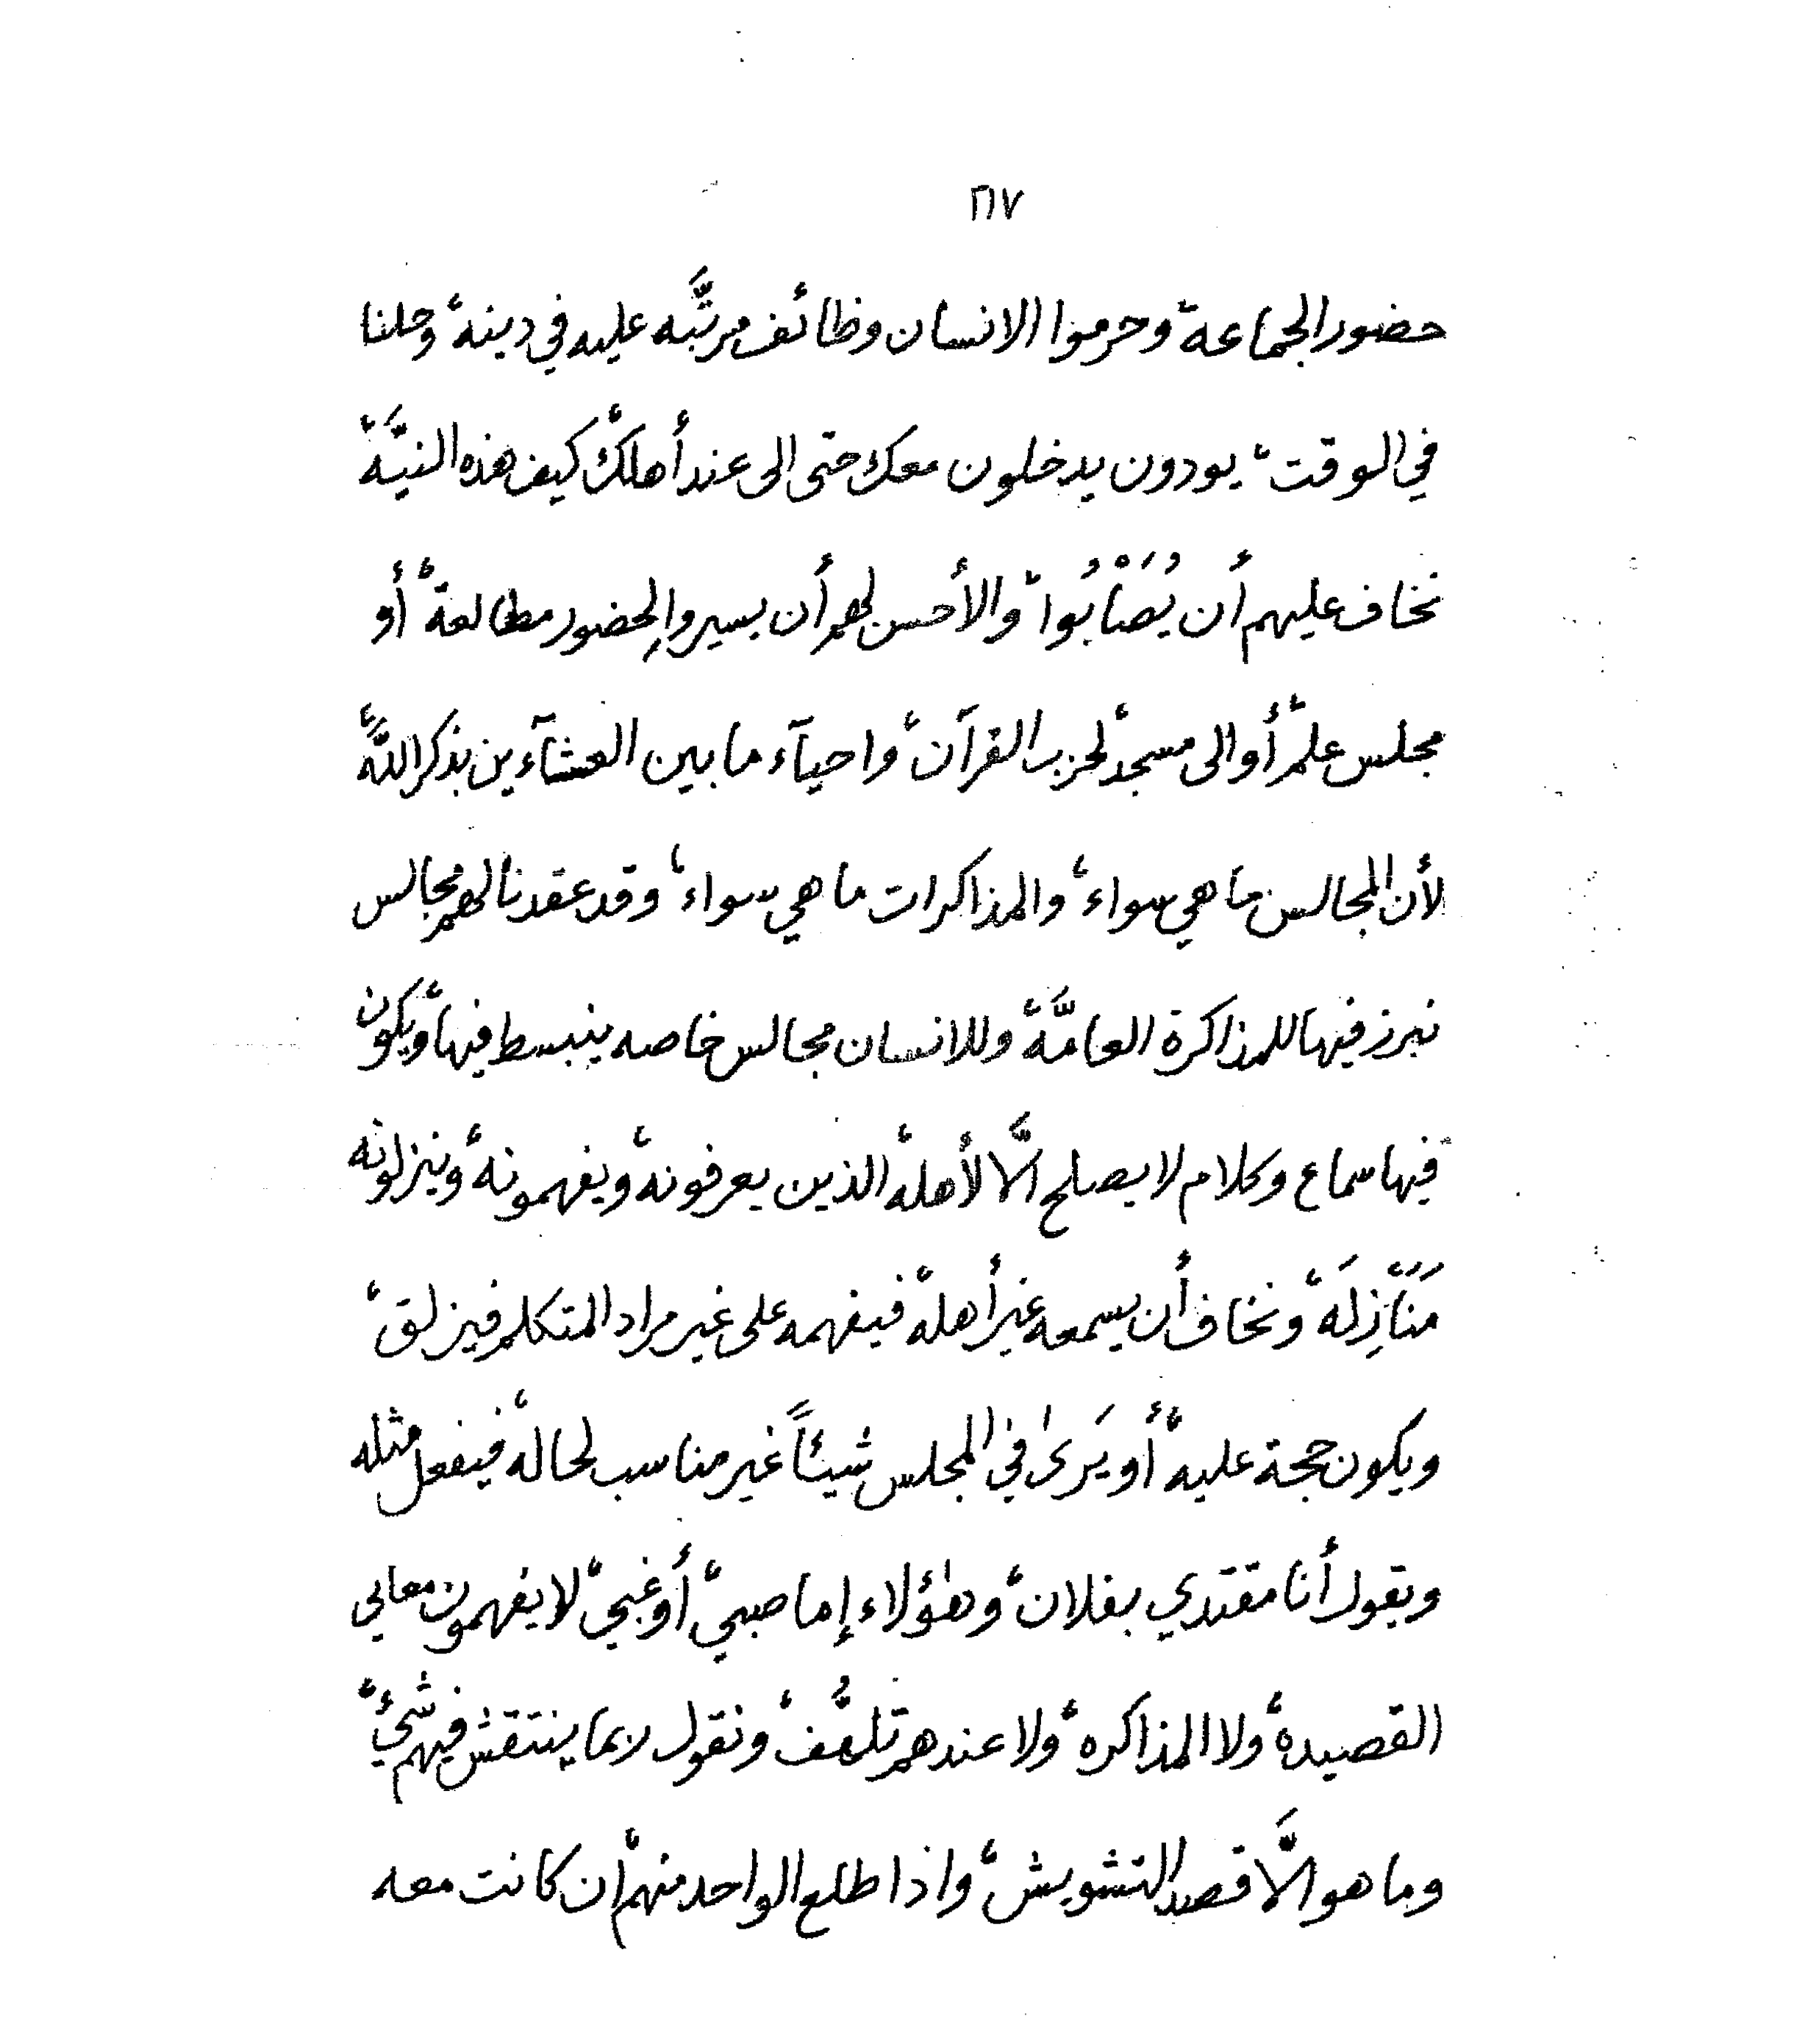 ٦١٧
حضور الجماعة، وحرموا الانسان وظائف مرتَّبه عليه في دينه، وحلنا
في الوقت، يودون يدخلون معك حتى الى عند أهلك، كيف هذه النيَّة،
نخاف عليهم أن يُصَابُوا، والأحسن لهم أن يسيروا لحضور مطالعة، أو
مجلس علم، أو الى مسجد، لحزب القرآن، واحيآء ما بين العشآءين بذكر اللّه،
لأن المجالس ما هي سواء، والمذاكرات ما هي سواء، وقد عقدنا لهم مجالس
نبرز فيها للمذاكرة العامَّة، وللانسان مجالس خاصه ينبسط فيها، ويكون
فيها سماع وكلام لا يصلح الَّا لأهله، الذين يعرفونه، ويفهمونه، وينزلونه
مَنَازِلَه، ونخاف أن يسمعه غير أهله، فيفهمه على غير مراد المتكلم فيزلق،
ويكون حجة عليه، أو يَرىٰ في المجلس شيئاً غير مناسب لحاله، فيفعل مثله
ويقول أنا مقتدي بفلان، وهٰؤلاء إما صبي، أو غبي، لا يفهمون معاني
القصيدة، ولا المذاكره، ولا عندهم تلهُّف، ونقول ربما ينتقش فيهم شيء،
وما هو الَّا قصد التشويش، واذا طلع الواحد منهم، ان كانت معه